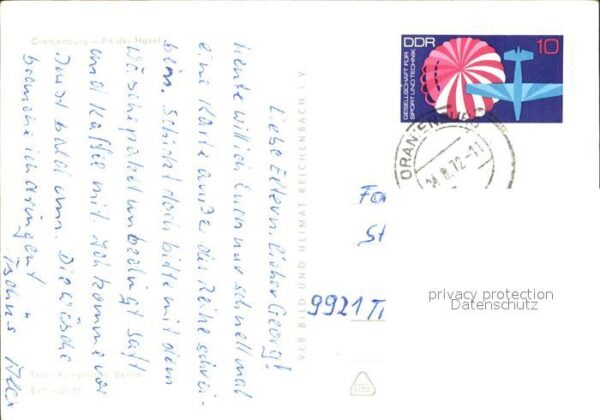 Oranienburg - An der Havel
Liebe Eltern, lieber Georg!
Heute will ich Euch nur schnell mal
eine Karte außer der Reihe schrei-
ben. Schickt doch bitte mit dem
Wäschepaket unbedingt Saft
und Kaffee mit. Ich komme vor
bald Die Wäsche
brauche ich dringend
Tschüs Alex
Berlin
VEB BILD UND HEIMAT REICHENBACH I. V.
DDR 10
GESELLSCHAFT FÜR
SPORT UND TECHNIK
ORANIENBURG
8.72
Fa
St
9921 T
privacy protection
Datenschutz